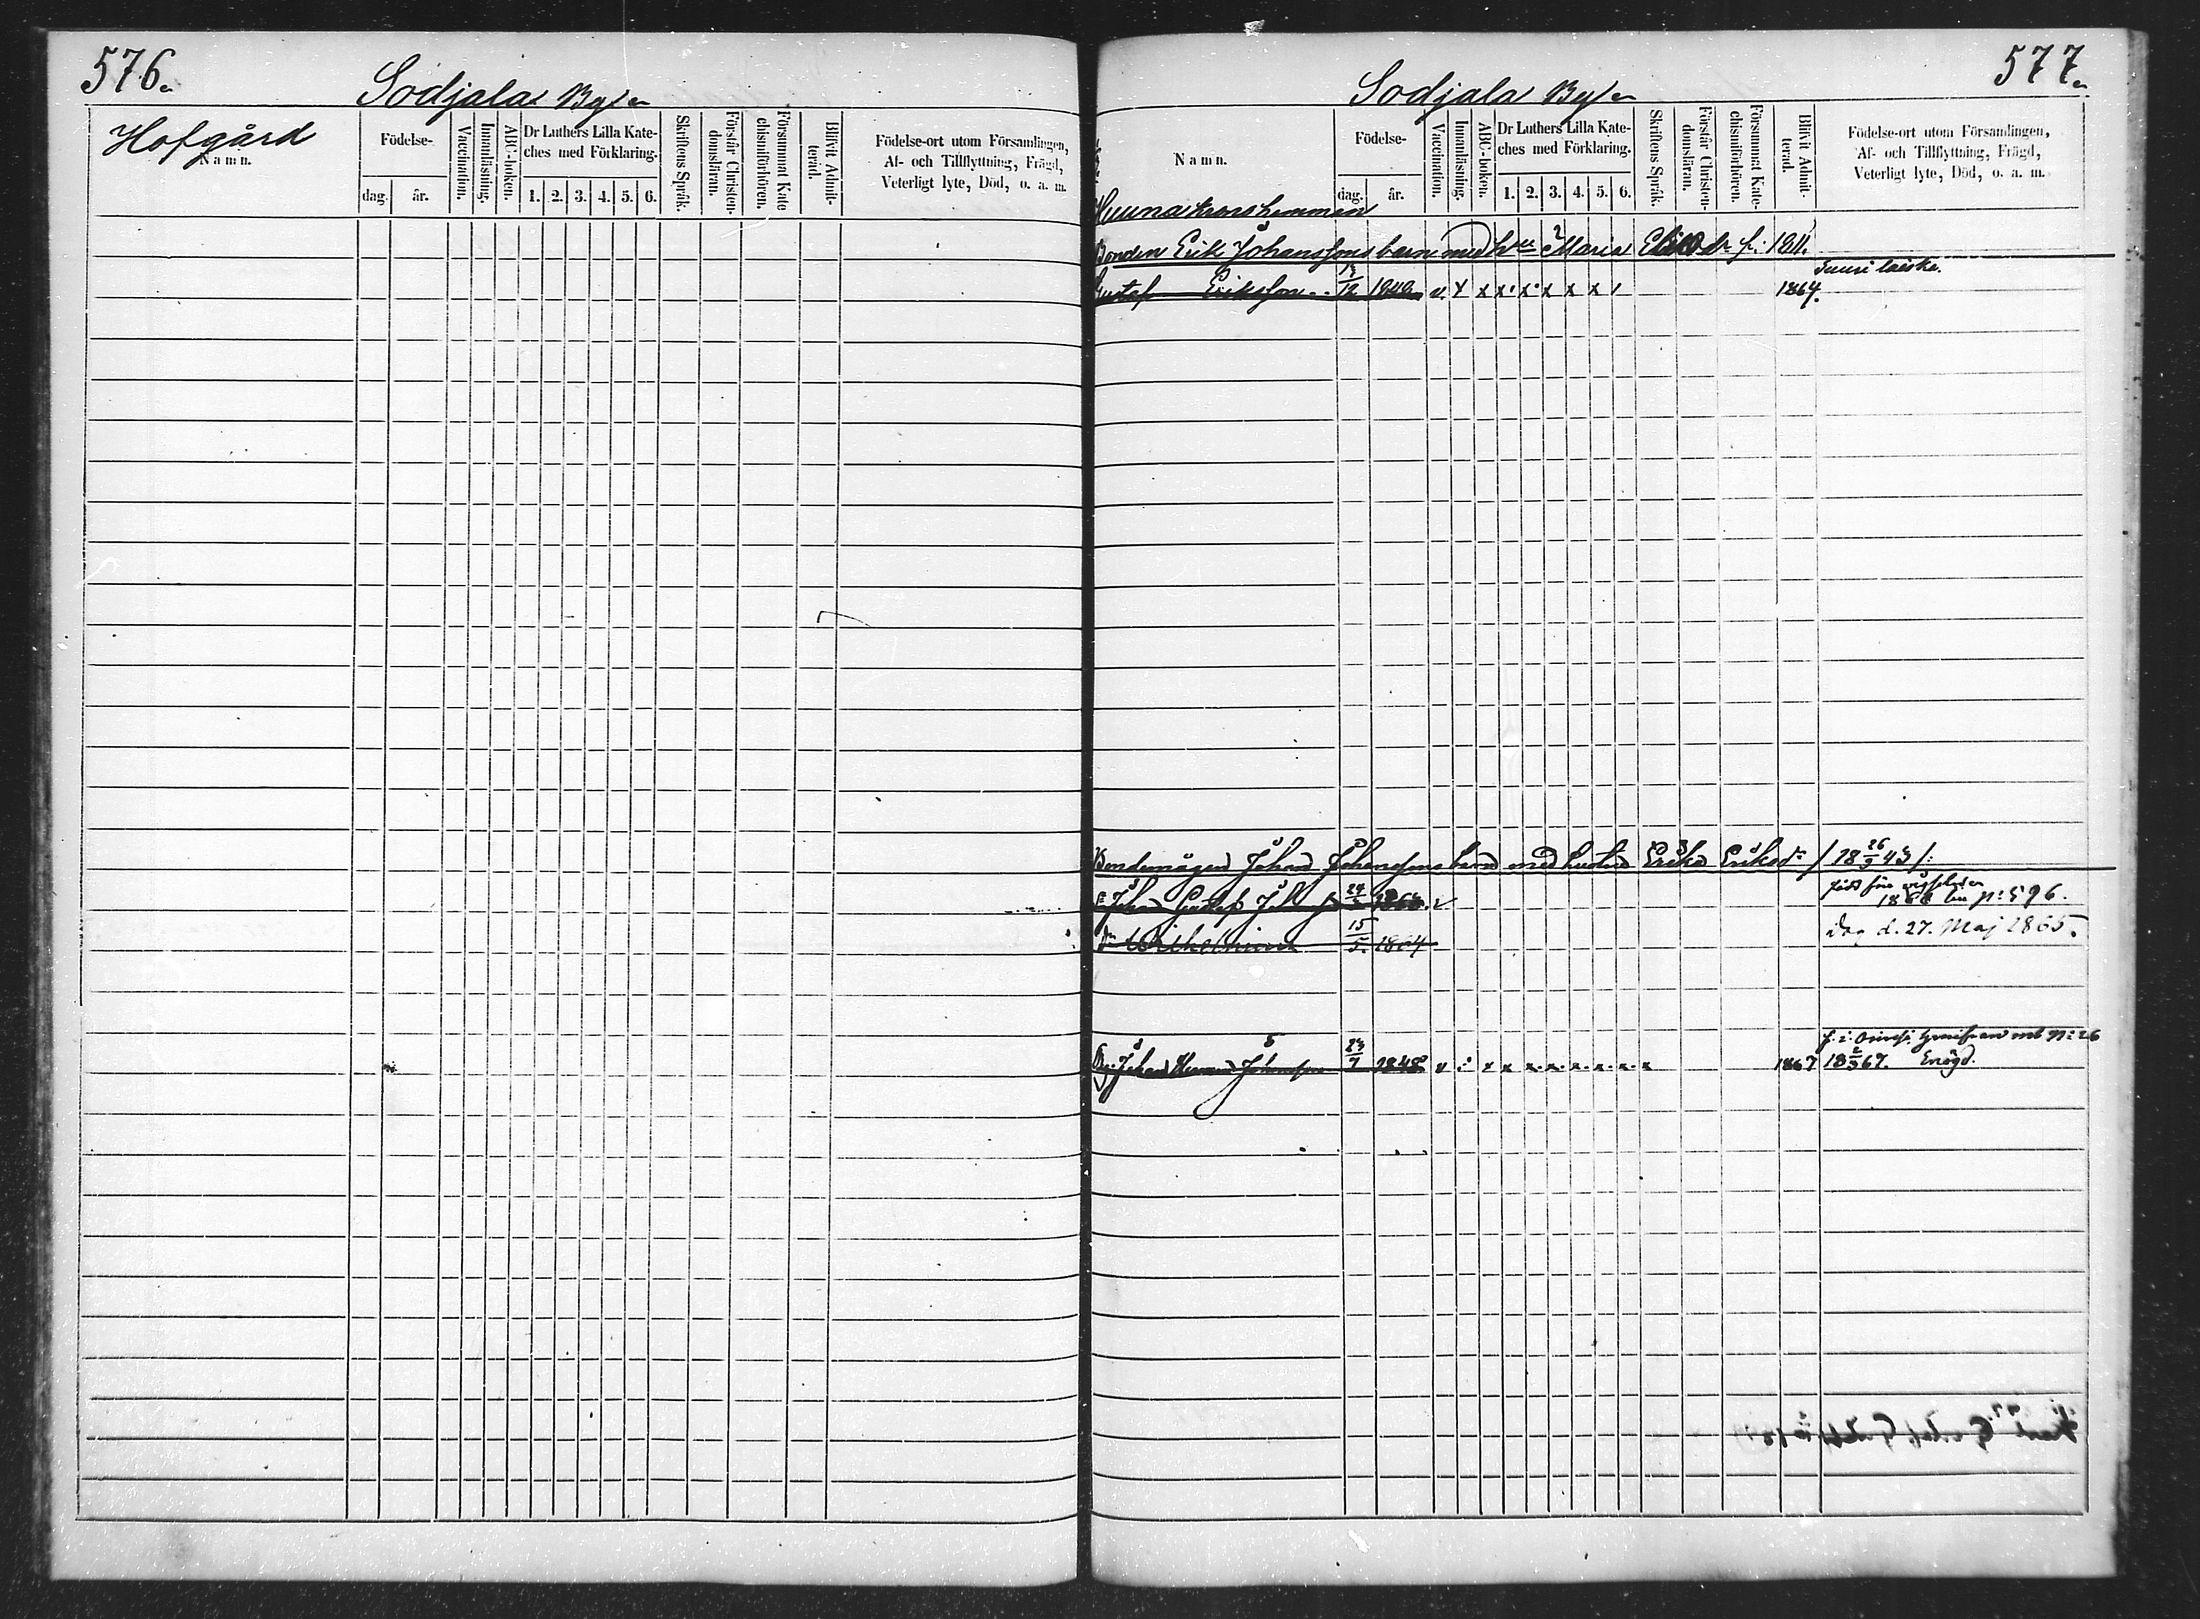 576.
Sodjala By.
Hofgård
Namn.
Födelse-
dag.
år.
Vaccination.
Innanläsning.
ABC-boken.
Dr Luthers Lilla Kate-
ches med Förklaring.
1. 2. 3. 4. 5. 6.
Skriftens Språk.
Förstår Christen-
domsläran.
Försummat Kate
chismiförhören.
Blifvit Admit-
terad.
Födelse-ort utom Församlingen,
Af- och Tillflyttning, Frägd,
Veterligt lyte, Död, o. a. m.
577.
Sodjala By.
Namn.
Födelse-
dag.
år.
Vaccination.
Innanläsning.
ABC-boken.
Dr Luthers Lilla Kate-
ches med Förklaring.
1. 2. 3. 4. 5. 6.
Skriftens Språk.
Förstår Christen-
domsläran.
Försummat Kate-
chismiförhören.
Blifvit Admit-
terad.
Födelse-ort utom Församlingen,
Af- och Tillflyttning, Frägd,
Veterligt lyte, Död, o. a. m.
Huuna kronohemman
Bonden Erik Johanssons barn med Maria f. 1811.
Gustaf Eriksson 12 v x x x x x x x 1864.
Johan Johanssons barn med hustru Erika Eriksd:r / 18 26/3 43 /:
Johan Gustaf 1868 N:o 596.
Wilhelmina 15/5. 1864 dog d. 27. Maj 1865.
Johan Johansson 1848 v x x x x x x x x 1867 18 2/3 67. Enögd.
N:o 26